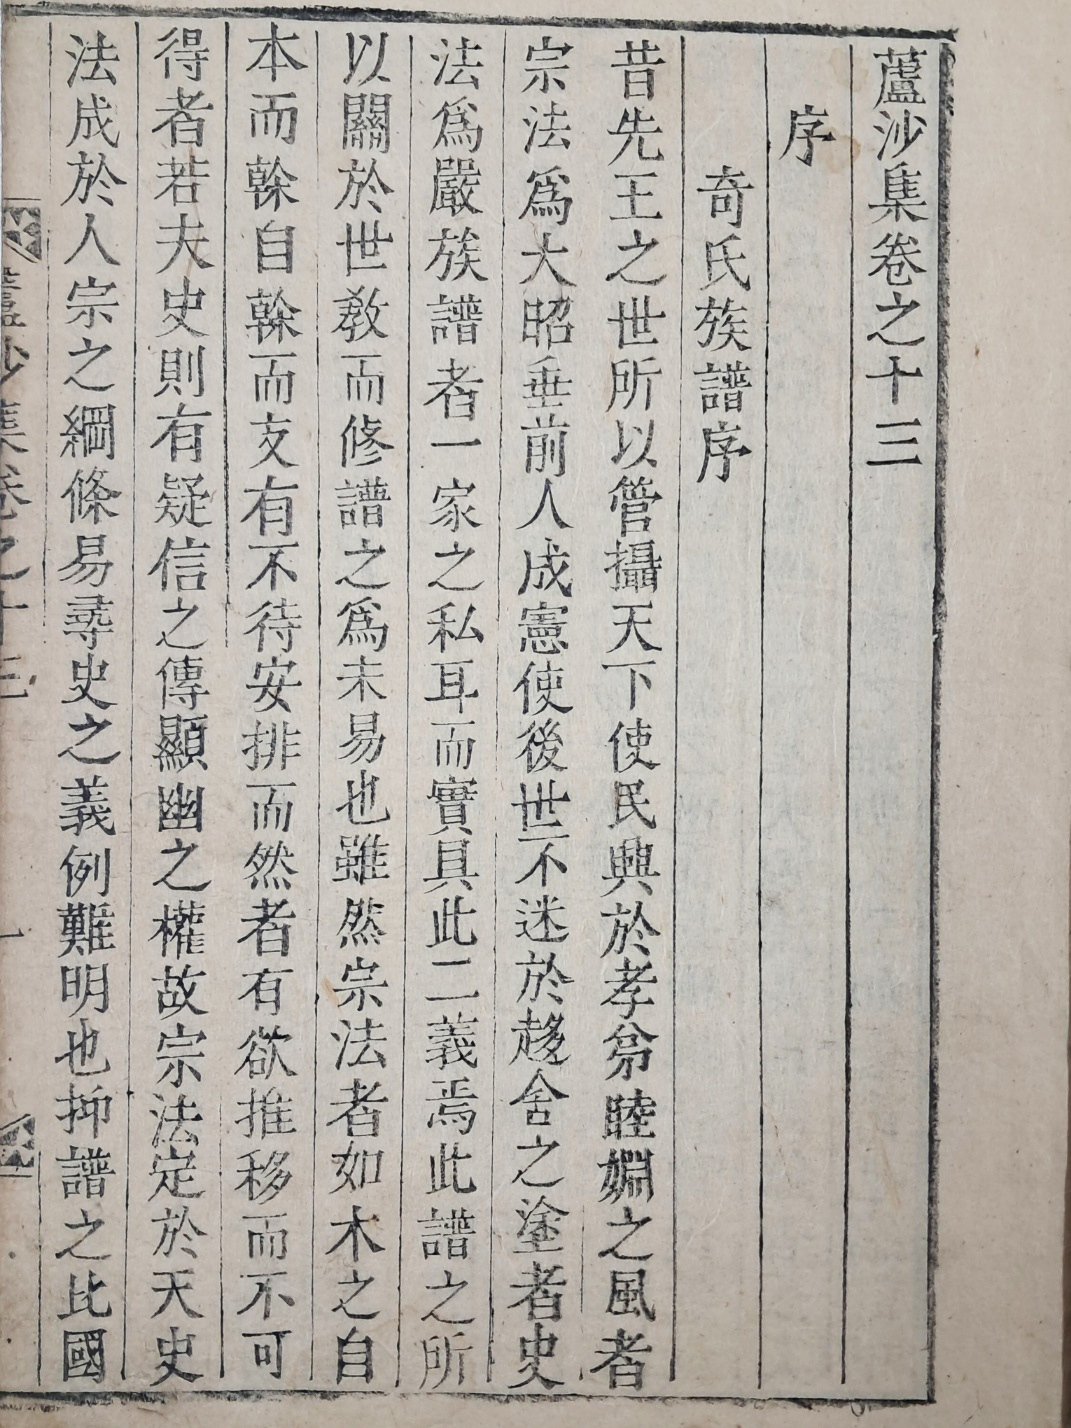 蘆沙集卷之十三
序
奇氏族譜序
昔先王之世所以管攝天下使民興於孝弟睦婣之風者
宗法爲大昭垂前人成憲使後世不迷於趍舍之塗者史
法爲嚴族譜者一家之私耳而實具此二義焉此譜之所
以關於世敎而修譜之爲未易也雖然宗法者如木之自
本而榦自榦而支有不待安排而然者有欲推移而不可
得者若夫史則有疑信之傳顯幽之權故宗法定於天史
法成於人宗之綱條易尋史之義例難明也抑譜之比國
蘆沙集卷之十三
一